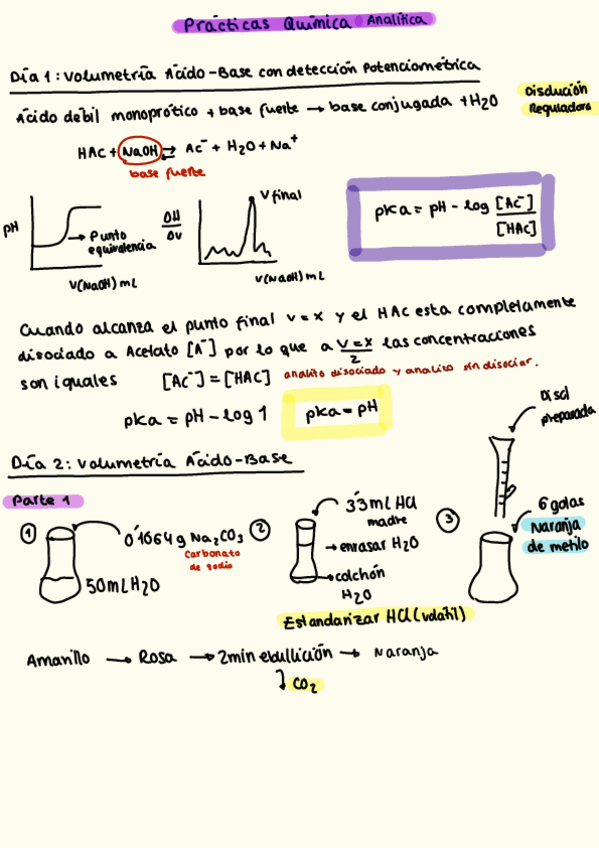 Prácticas Química Analítica
Día 1: Volumetría Ácido-Base con detección Potenciométrica
Ácido debil monoprótico + base fuerte → base conjugada + H2O
Disolución
Reguladora
HAc + NaOH ⇄ Ac⁻ + H2O + Na⁺
base fuerte
pH
Punto
equivalencia
V(NaOH) mL
ΔH
ΔV
V final
V(NaOH) mL
pKa = pH - log [Ac⁻]
[HAc]
Cuando alcanza el punto final V = x y el HAc esta completamente
disociado a Acetato [A⁻] por lo que a V = x/2 las concentraciones
son iguales [Ac⁻] = [HAc] analito disociado y analito sin disociar.
pKa = pH - log 1
pKa = pH
Día 2: Volumetría Ácido-Base
Parte 1
1
0'1064 g Na2CO3
Carbonato
de sodio
50 mL H2O
2
3'3 mL HCl
madre
→ enrasar H2O
→ colchón
H2O
Estandarizar HCl (volatil)
3
Disol
preparada
6 gotas
Naranja
de metilo
Amarillo → Rosa → 2min ebullición → Naranja
↓ CO2